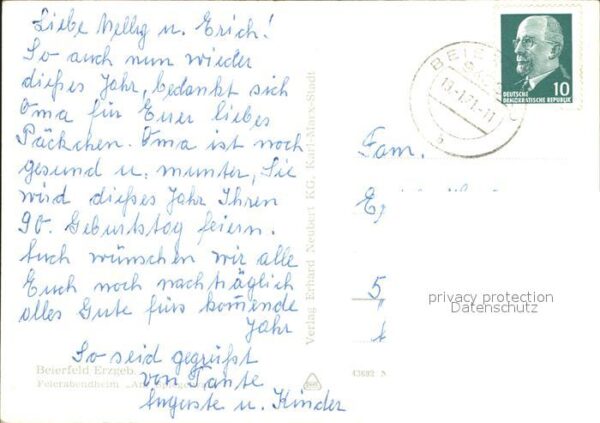 Liebe Nellÿ u. Erich!
So auch nun wieder
dießes Jahr, bedankt sich
Oma für Euer liebes
Päckchen. Oma ist noch
gesund u. munter, Sie
wird dießes Jahr Ihren
90. Geburtstag feiern.
Auch wünschen wir alle
Euch noch nachträglich
alles Gute fürs kom̅ende
Jahr
So seid gegrüßt
von Tante
Auguste u. Kinder
Beierfeld Erzgeb.
Feierabendheim
Verlag Erhard Neubert KG. Karl-Marx-Stadt
43682 N
10
DEUTSCHE
DEMOKRATISCHE REPUBLIK
Fam.
E
5,
privacy protection
Datenschutz